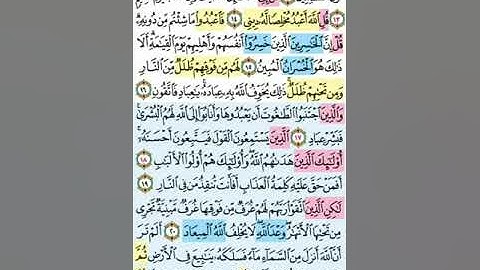 ١٣ قُلِ ٱللَّهَ أَعْبُدُ مُخْلِصًا لَّهُۥ دِينِى ١٤ فَٱعْبُدُوا۟ مَا شِئْتُم مِّن دُونِهِۦ
قُلْ إِنَّ ٱلْخَٰسِرِينَ ٱلَّذِينَ خَسِرُوٓا۟ أَنفُسَهُمْ وَأَهْلِيهِمْ يَوْمَ ٱلْقِيَٰمَةِ أَلَا
ذَٰلِكَ هُوَ ٱلْخُسْرَانُ ٱلْمُبِينُ ١٥ لَهُم مِّن فَوْقِهِمْ ظُلَلٌ مِّنَ ٱلنَّارِ
وَمِن تَحْتِهِمْ ظُلَلٌ ذَٰلِكَ يُخَوِّفُ ٱللَّهُ بِهِۦ عِبَادَهُۥ يَٰعِبَادِ فَٱتَّقُونِ ١٦
وَٱلَّذِينَ ٱجْتَنَبُوا۟ ٱلطَّٰغُوتَ أَن يَعْبُدُوهَا وَأَنَابُوٓا۟ إِلَى ٱللَّهِ لَهُمُ ٱلْبُشْرَىٰ
فَبَشِّرْ عِبَادِ ١٧ ٱلَّذِينَ يَسْتَمِعُونَ ٱلْقَوْلَ فَيَتَّبِعُونَ أَحْسَنَهُۥٓ
أُو۟لَٰٓئِكَ ٱلَّذِينَ هَدَىٰهُمُ ٱللَّهُ وَأُو۟لَٰٓئِكَ هُمْ أُو۟لُوا۟ ٱلْأَلْبَٰبِ ١٨
أَفَمَنْ حَقَّ عَلَيْهِ كَلِمَةُ ٱلْعَذَابِ أَفَأَنتَ تُنقِذُ مَن فِى ٱلنَّارِ ١٩
لَٰكِنِ ٱلَّذِينَ ٱتَّقَوْا۟ رَبَّهُمْ لَهُمْ غُرَفٌ مِّن فَوْقِهَا غُرَفٌ مَّبْنِيَّةٌ تَجْرِى
مِن تَحْتِهَا ٱلْأَنْهَٰرُ وَعْدَ ٱللَّهِ لَا يُخْلِفُ ٱللَّهُ ٱلْمِيعَادَ ٢٠ أَلَمْ تَرَ
أَنَّ ٱللَّهَ أَنزَلَ مِنَ ٱلسَّمَآءِ مَآءً فَسَلَكَهُۥ يَنَٰبِيعَ فِى ٱلْأَرْضِ ثُمَّ